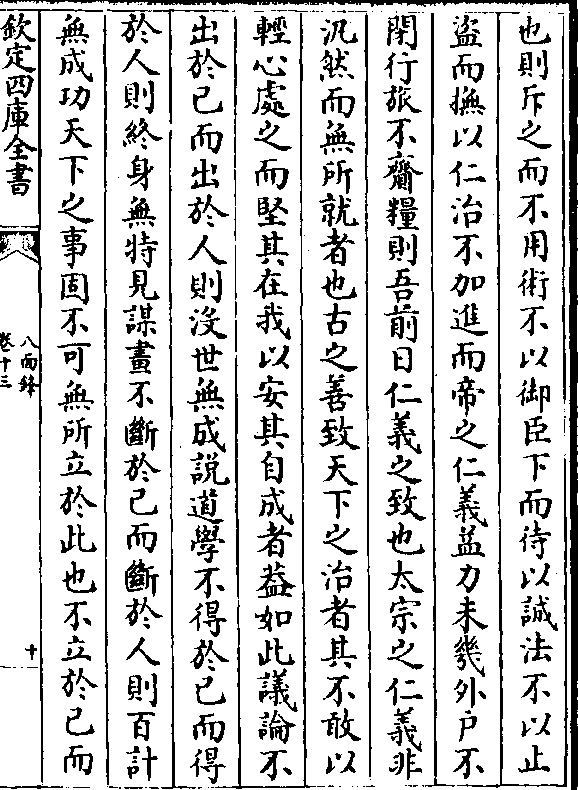 也則斥之而不用術不以御臣下而待以誠法不以止
盜而撫以仁治不加進而帝之仁義益力未幾外戶不
閉行旅不齎糧則吾前日仁義之致也太宗之仁義非
汎然而無所就者也古之善致天下之治者其不敢以
輕心處之而堅其在我以安其自成者葢如此議論不
出於已而出於人則沒世無成說道學不得於已而得
於人則終身無特見謀畫不斷於已而斷於人則百計
無成功天下之事固不可無所立於此也不立於已而
欽定四庫全書
八面鋒
卷十三
十